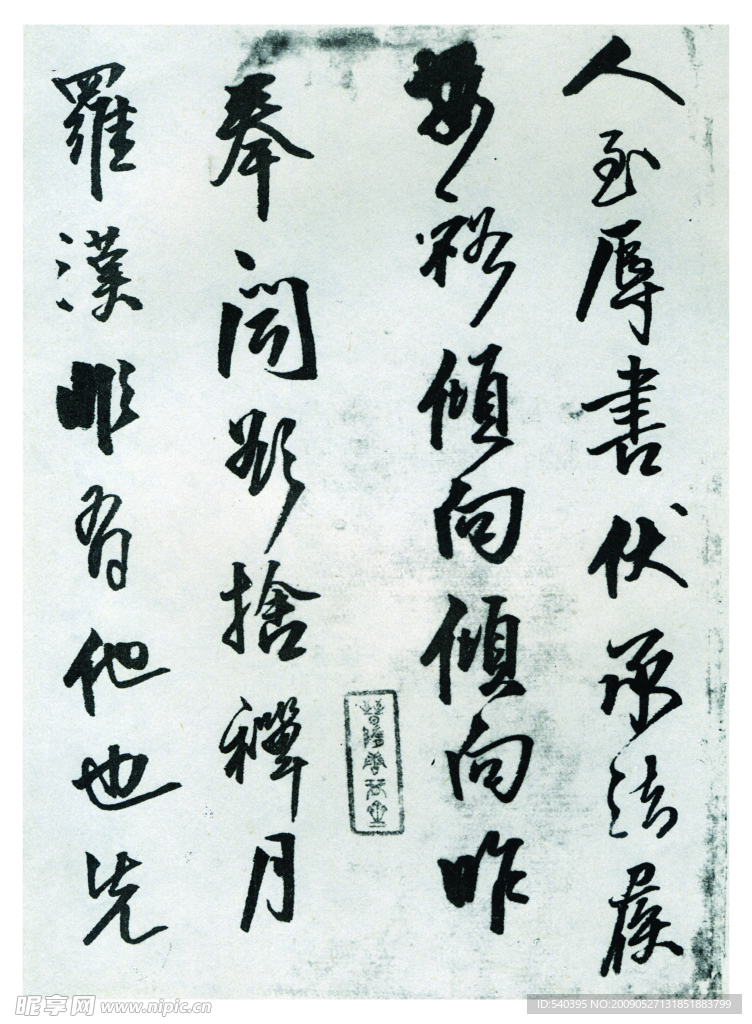 人至辱書伏承法候
安裕傾向傾向昨
奉聞欲捨禪月
羅漢非有他也先
昵享网 www.nipic.cn
ID:540395 NO:20090527131851883799